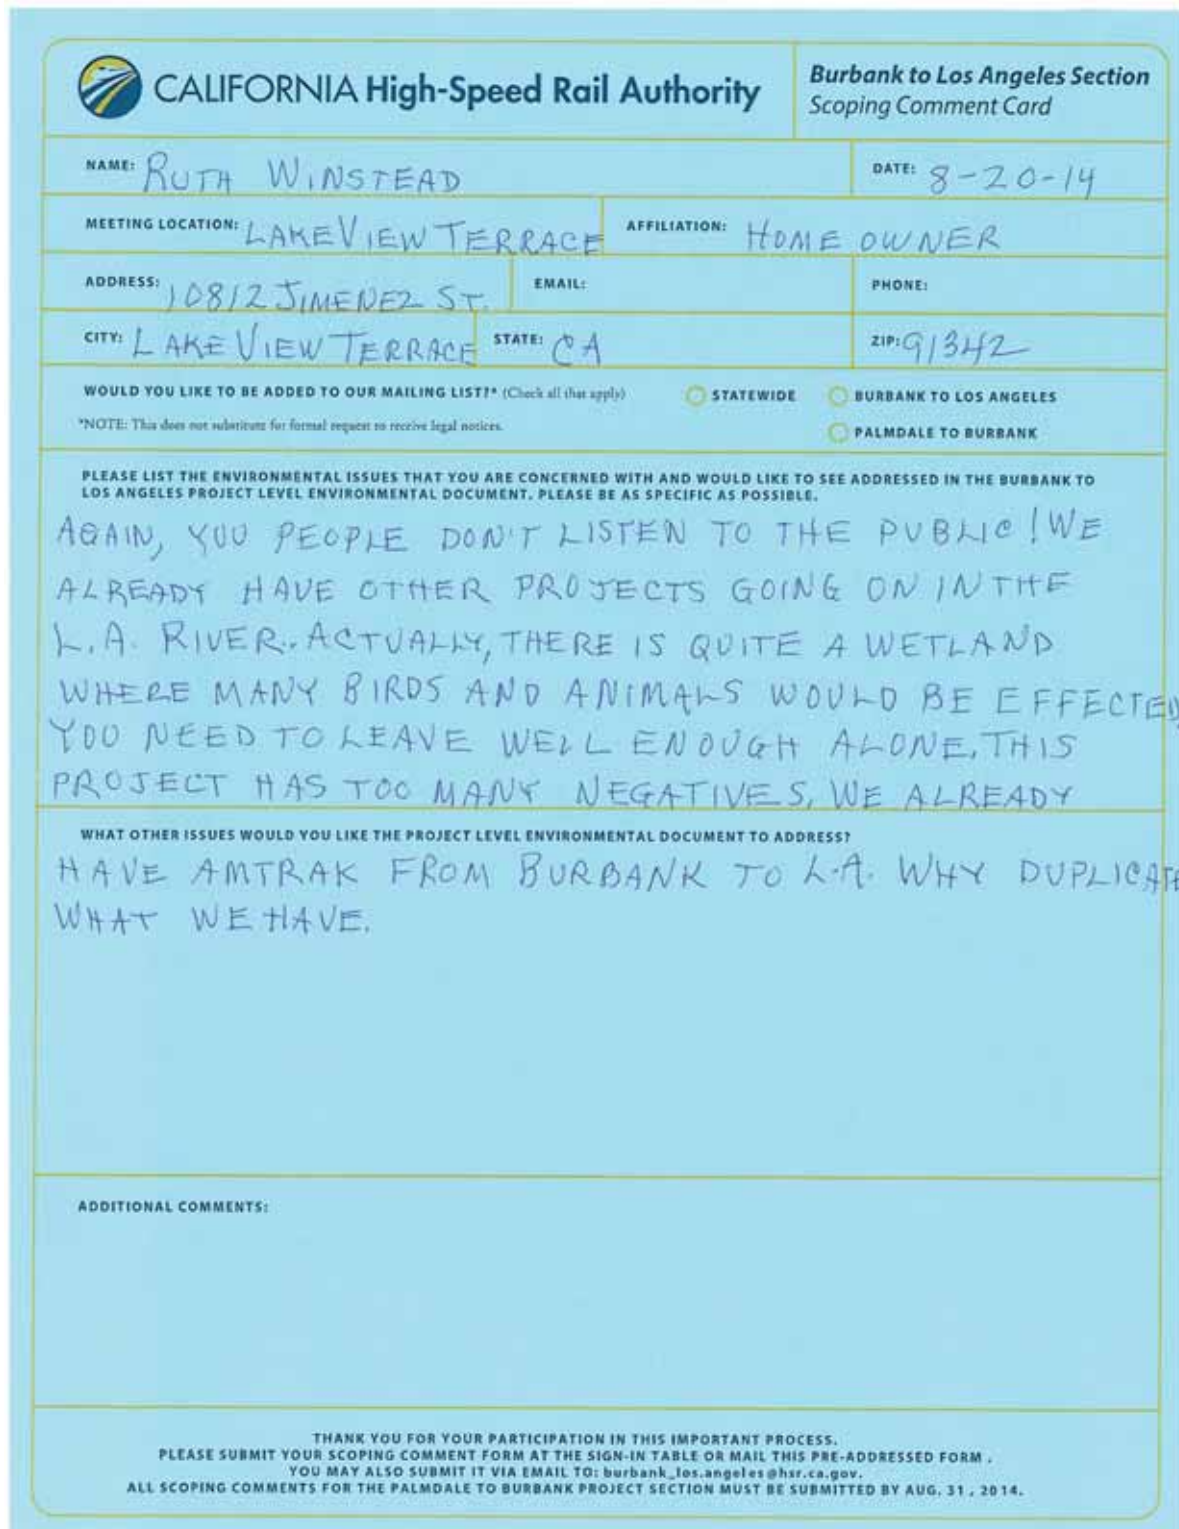 CALIFORNIA High-Speed Rail Authority
Burbank to Los Angeles Section
Scoping Comment Card
NAME: RUTH WINSTEAD
DATE: 8-20-14
MEETING LOCATION: LAKEVIEW TERRACE
AFFILIATION: HOME OWNER
ADDRESS: 10812 JIMENEZ ST.
EMAIL:
PHONE:
CITY: LAKE VIEW TERRACE
STATE: CA
ZIP: 91342
WOULD YOU LIKE TO BE ADDED TO OUR MAILING LIST?* (Check all that apply)
STATEWIDE
BURBANK TO LOS ANGELES
*NOTE: This does not substitute for formal request to receive legal notices.
PALMDALE TO BURBANK
PLEASE LIST THE ENVIRONMENTAL ISSUES THAT YOU ARE CONCERNED WITH AND WOULD LIKE TO SEE ADDRESSED IN THE BURBANK TO
LOS ANGELES PROJECT LEVEL ENVIRONMENTAL DOCUMENT. PLEASE BE AS SPECIFIC AS POSSIBLE.
AGAIN, YOU PEOPLE DON'T LISTEN TO THE PUBLIC! WE
ALREADY HAVE OTHER PROJECTS GOING ON IN THE
L.A. RIVER. ACTUALLY, THERE IS QUITE A WETLAND
WHERE MANY BIRDS AND ANIMALS WOULD BE EFFECTED,
YOU NEED TO LEAVE WELL ENOUGH ALONE. THIS
PROJECT HAS TOO MANY NEGATIVES, WE ALREADY
WHAT OTHER ISSUES WOULD YOU LIKE THE PROJECT LEVEL ENVIRONMENTAL DOCUMENT TO ADDRESS?
HAVE AMTRAK FROM BURBANK TO L.A. WHY DUPLICATE
WHAT WE HAVE.
ADDITIONAL COMMENTS:
THANK YOU FOR YOUR PARTICIPATION IN THIS IMPORTANT PROCESS.
PLEASE SUBMIT YOUR SCOPING COMMENT FORM AT THE SIGN-IN TABLE OR MAIL THIS PRE-ADDRESSED FORM .
YOU MAY ALSO SUBMIT IT VIA EMAIL TO: burbank_los.angeles@hsr.ca.gov.
ALL SCOPING COMMENTS FOR THE PALMDALE TO BURBANK PROJECT SECTION MUST BE SUBMITTED BY AUG. 31 , 2014.